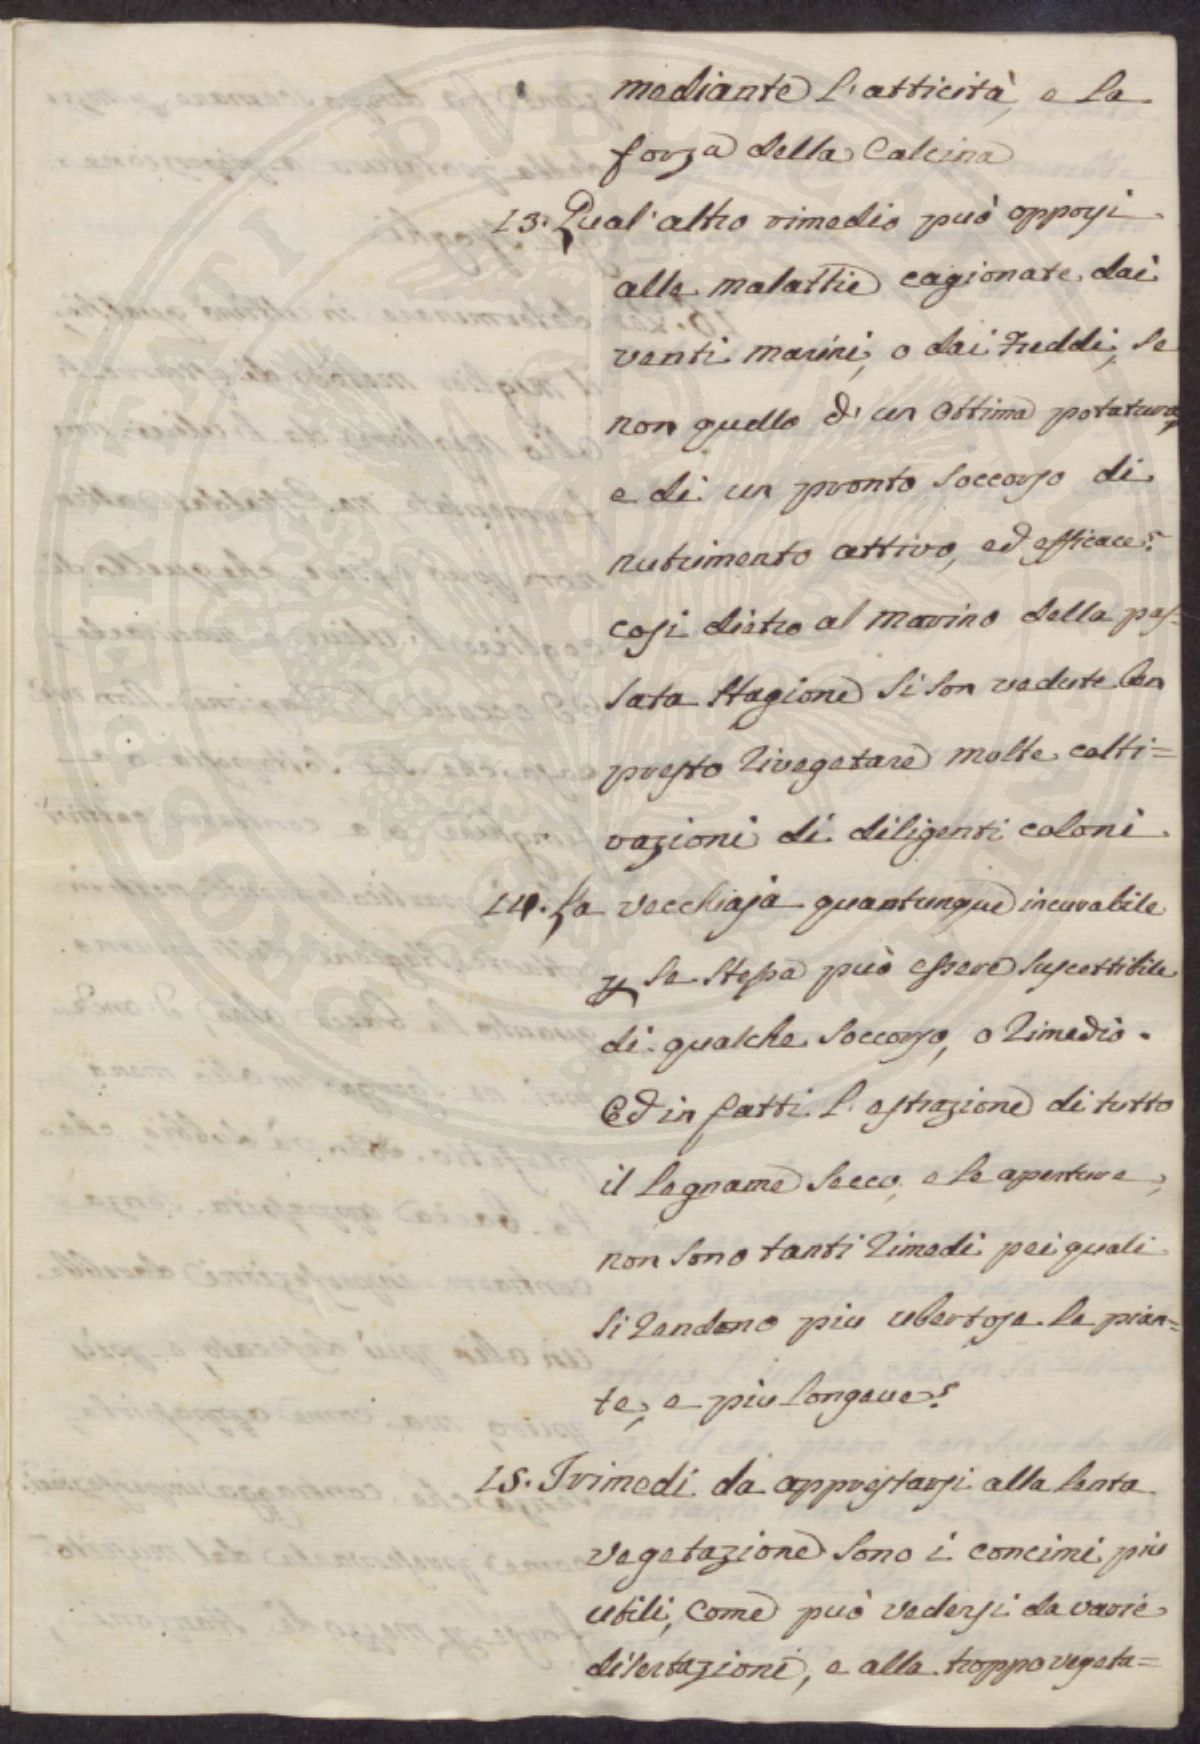 mediante l'atticità, e la
forza della Calcina
13. Qual'altro rimedio può opporsi
alle malattie cagionate dai
venti marini, o dai freddi, se
non quello d'un ottima potatura,
e di un pronto soccorso di
nutrimento attivo, ed efficace?
così dietro al marino della pas=
sata stagione si son vedute ben
presto rivegetare molte colti=
vazioni di diligenti coloni.
14. La vecchiaja quantunque incurabile
p se stessa può essere suscettibile
di qualche soccorso, o rimedio.
Ed in fatti l'estrazione di tutto
il legname secco, e le aperture,
non sono tanti rimedi pei quali
si rendono piu ubertose le pian=
te, e piu longeve?
15. I rimedi da apprestarsi alla lenta
vegetazione sono i concimi piu
utili, come può vedersi da varie
disertazioni, e alla troppo vegeta=